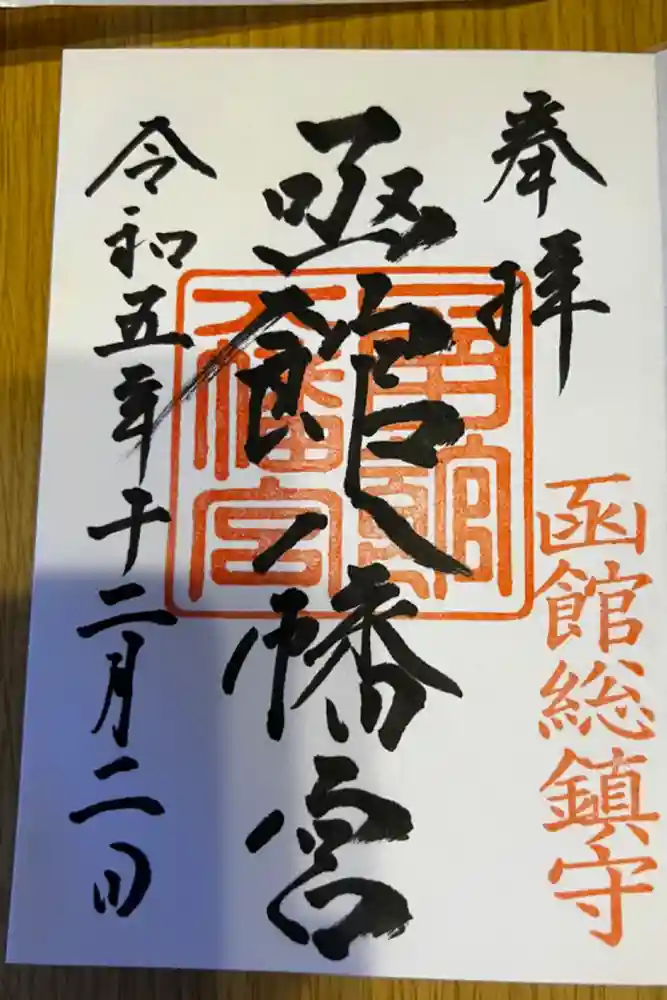 奉拝
函館総鎮守
函館八幡宮
函館
八幡宮
令和五年十二月二日